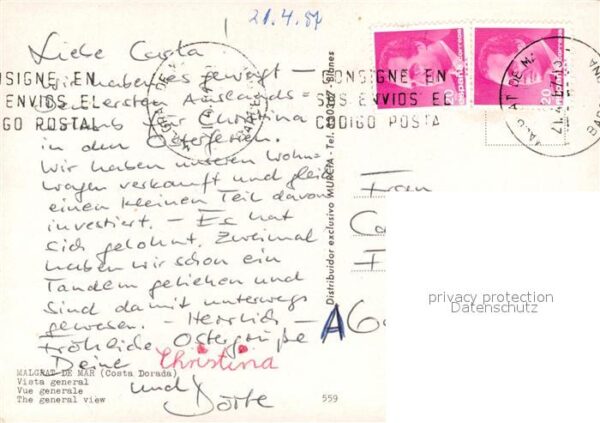 21.4.87
Liebe Casta
Wir haben es gewagt –
Den ersten Auslands=
urlaub für Christina
in den Osterferien.
Wir haben unseren Wohn=
wagen verkauft und gleich
einen kleinen Teil davon
investiert. – Es hat
sich gelohnt. Zweimal
haben wir schon ein
Tandem geliehen und
sind damit unterwegs
gewesen. – Herrlich –
Fröhliche Ostergrüße
Deine Christina
und Dörte
MALGRAT DE MAR (Costa Dorada)
Vista general
Vue générale
The general view
559
Distribuidor exclusivo MURCIA - Tel. 330367 Blanes
CONSIGNE EN
SUS ENVIOS EL
CODIGO POSTAL
CONSIGNE EN
SUS ENVIOS EL
CODIGO POSTA
20
20
Frau
Ca
F
A6
privacy protection
Datenschutz